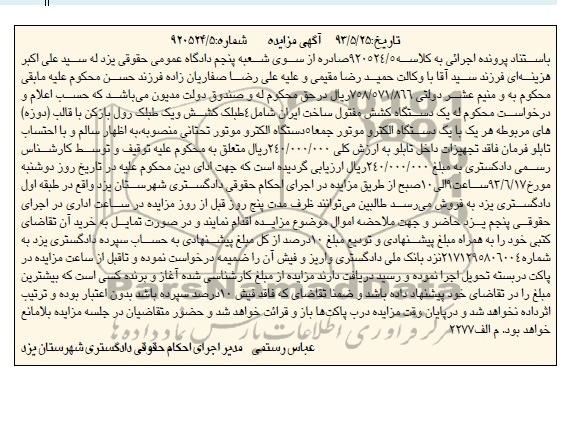 تاریخ:۹۳/۵/۲۵ آگهی مزایده شماره:۹۲۰۵۲۴/۵
باستناد پرونده اجرائی به کلاسه ۹۲۰۵۲۴/۵صادره از سوی شعبه پنجم دادگاه عمومی حقوقی یزد له سید علی اکبر
هزینه‌ای فرزند سید آقا با وکالت حمید رضا مقیمی و علیه علی رضا صفاریان زاده فرزند حسن محکوم علیه مابقی
محکوم به و منیم عشر دولتی ۷۵۸/۵۷۱/۸۶۶ریال درحق محکوم له و صندوق دولت مدیون می‌باشد که حسب اعلام و
درخواست محکوم له یک دستگاه کشش مفتول ساخت ایران شامل ۴طبلک کشش ویک طبلک رول بازکن با قالب (دوزه)
های مربوطه هر یک با یک دستگاه الکترو موتور جمعا۵دستگاه الکترو موتور تحتانی منصوبه،به اظهار سالم و با احتساب
تابلو فرمان فاقد تجهیزات داخل تابلو به ارزش کلی ۲۴۰/۰۰۰/۰۰۰ریال متعلق به محکوم علیه توقیف و توسط کارشناس
رسمی دادگستری به مبلغ ۲۴۰/۰۰۰/۰۰۰ریال ارزیابی گردیده است که جهت ادای دین محکوم علیه در تاریخ روز دوشنبه
مورخ۹۳/۶/۱۷ساعت۹الی۱۰صبح از طریق مزایده در اجرای احکام حقوقی دادگستری شهرستان یزد واقع در طبقه اول
دادگستری یزد به فروش می‌رسد طالبین می‌توانند ظرف مدت پنج روز قبل از روز مزایده در ساعت اداری در اجرای
حقوقی پنجم یزد حاضر و جهت ملاحضه اموال موضوع مزایده اقدام نمایند و در صورت تمایل به خرید آن تقاضای
کتبی خود را به همراه مبلغ پیشنهادی و تودیع مبلغ ۱۰درصد از کل مبلغ پیشنهادی به حساب سپرده دادگستری یزد به
شماره ۲۱۷۱۲۹۵۸۰۶۰۰۴نزد بانک ملی دادگستری واریز و فیش آن را ضمیمه درخواست نموده و تاقبل از ساعت مزایده در
پاکت دربسته تحویل اجرا نموده و رسید دریافت دارند مزایده از مبلغ کارشناسی شده آغاز و برنده کسی است که بیشترین
مبلغ را در تقاضای خود پیشنهاد داده باشد و ضمنا تقاضای که فاقد فیش ۱۰درصد سپرده باشد بدون اعتبار بوده و ترتیب
اثر داده نخواهد شد و درپایان وقت مزایده درب پاکت‌ها باز و قرائت خواهد شد و حضور متقاضیان در جلسه مزایده بلامانع
خواهد بود. م الف۲۲۷۷
عباس رستمی مدیر اجرای احکام حقوقی دادگستری شهرستان یزد